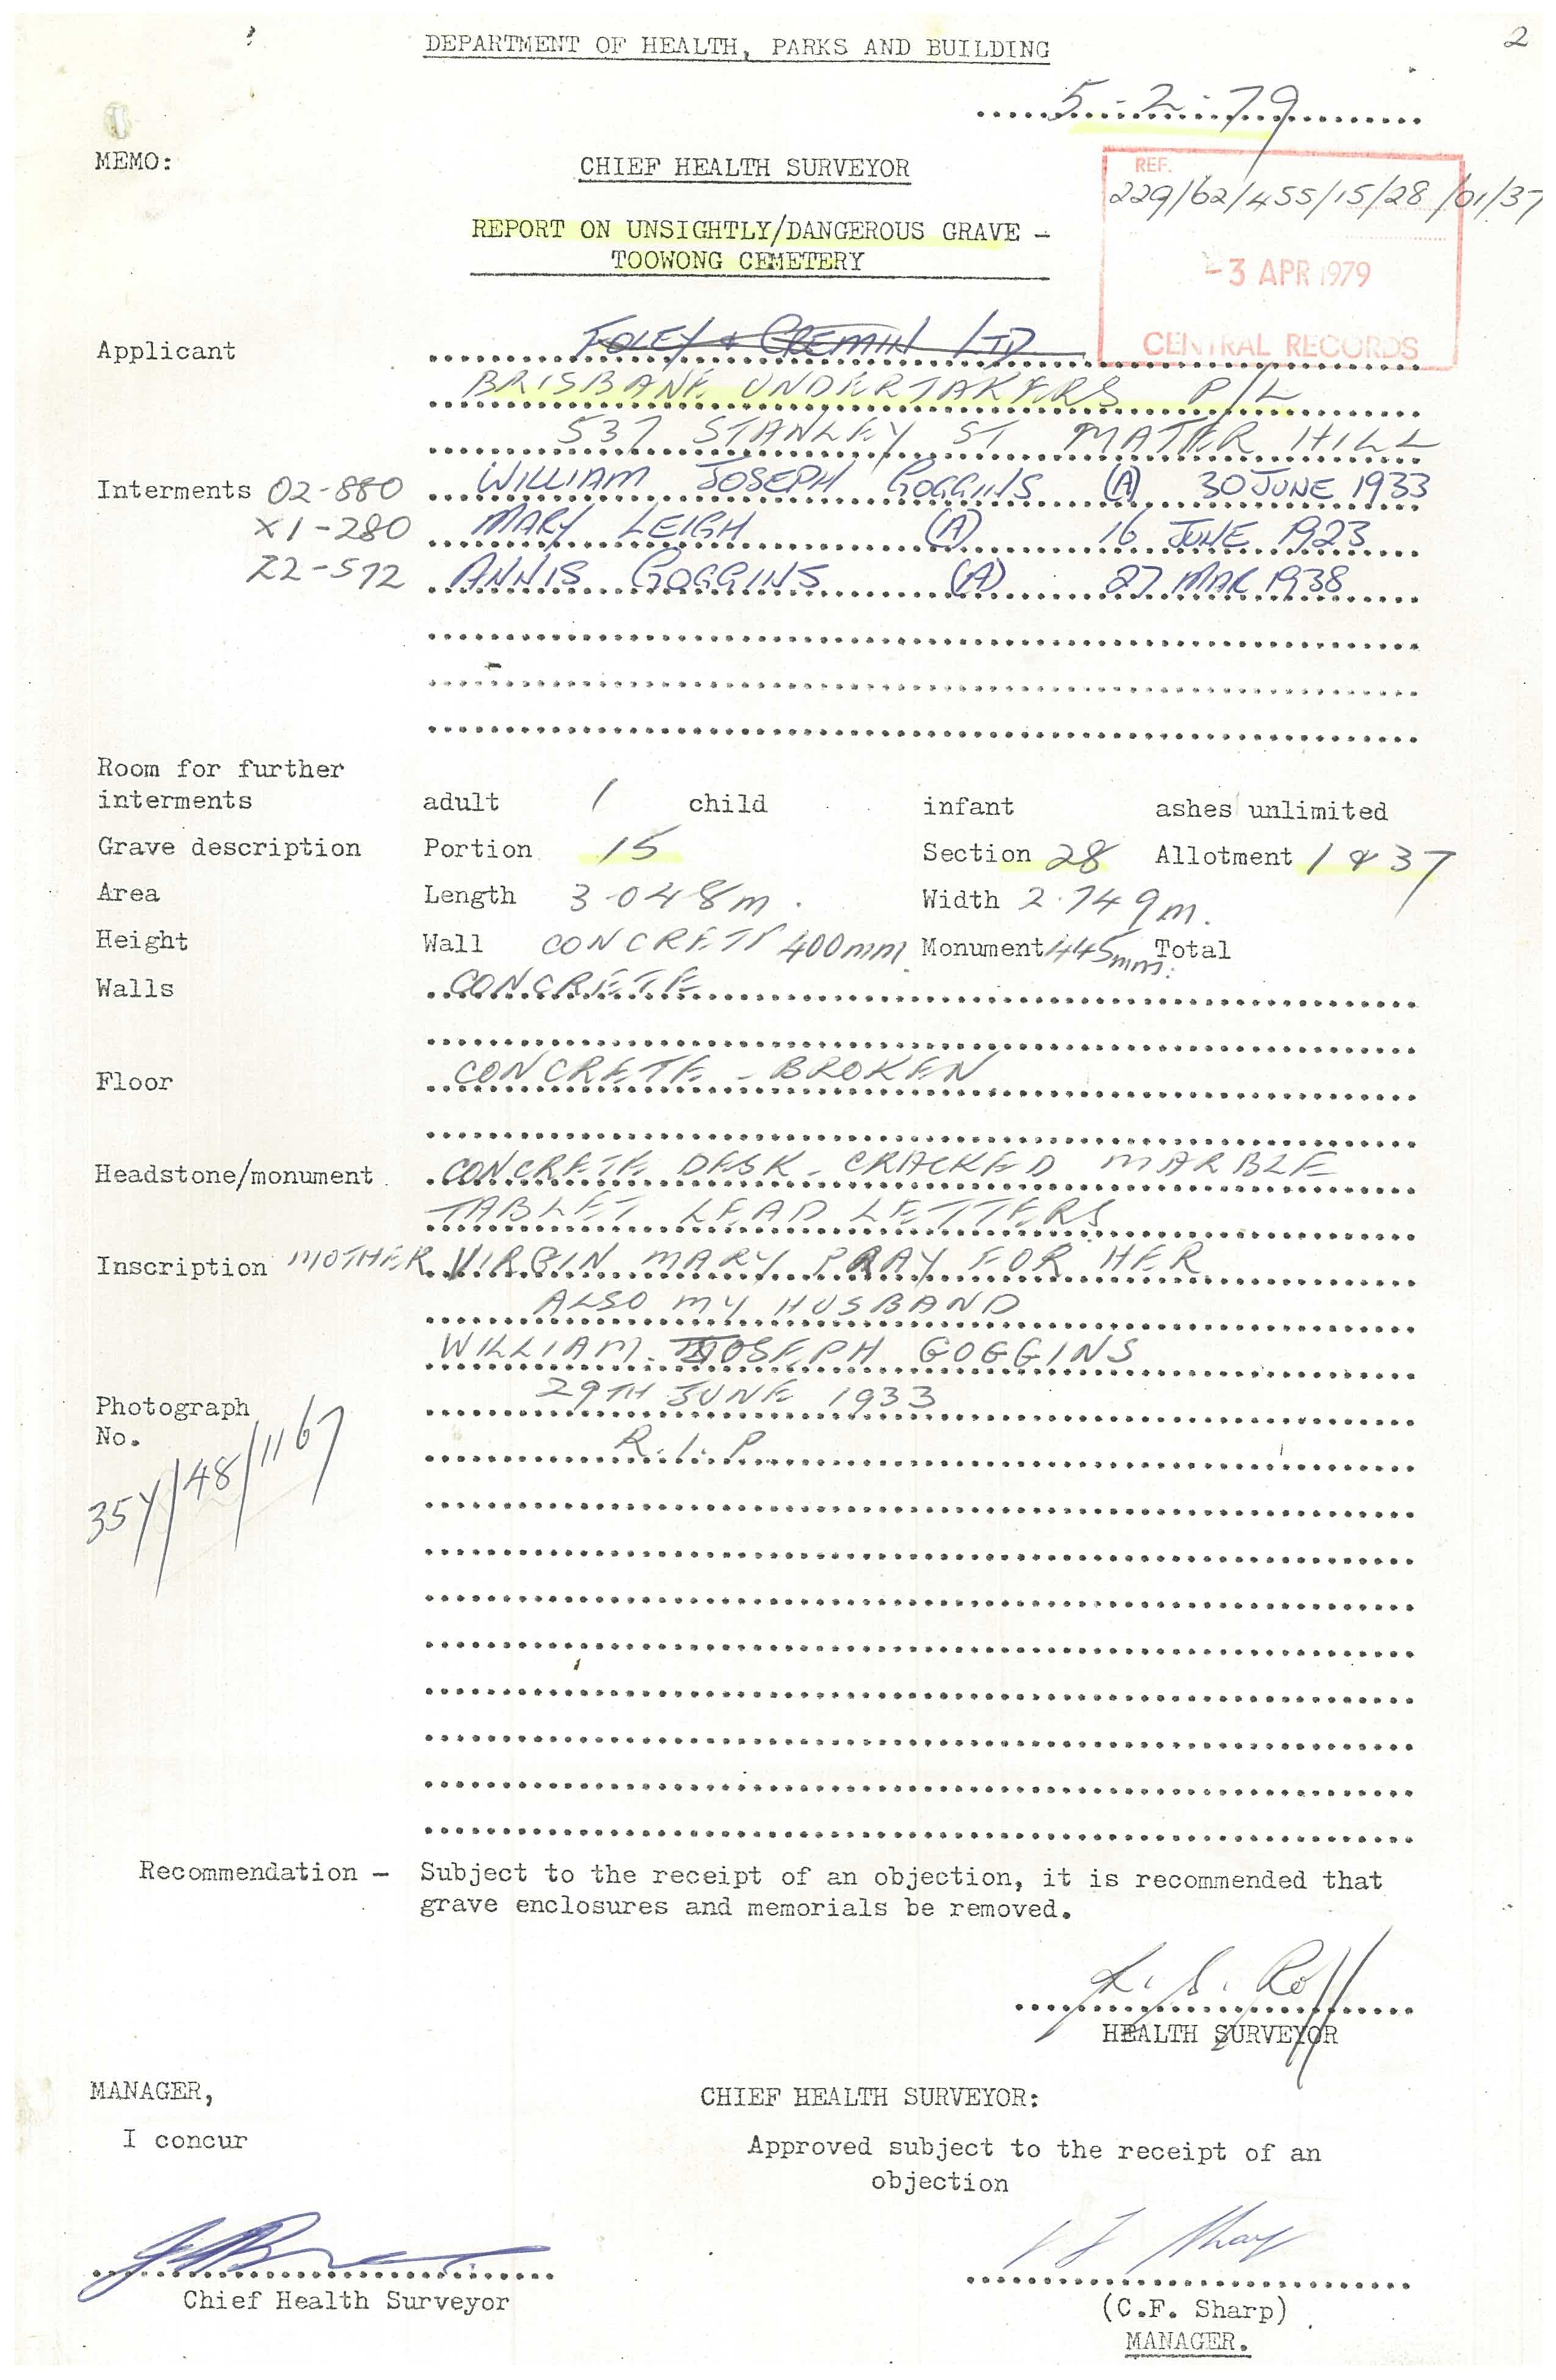 2
DEPARTMENT OF HEALTH, PARKS AND BUILDING
5-2-79
MEMO:
CHIEF HEALTH SURVEYOR
REF.
229/62/455/15/28/01/37
REPORT ON UNSIGHTLY/DANGEROUS GRAVE -
TOOWONG CEMETERY
-3 APR 1979
CENTRAL RECORDS
Applicant FOLEY & CREMAIN LTD
BRISBANE UNDERTAKERS P/L
537 STANLEY ST MATER HILL
Interments 02-880 WILLIAM JOSEPH GOGGINS (A) 30 JUNE 1933
X1-280 MARY LEIGH (A) 16 JUNE 1923
Z2-572 ANNIS GOGGINS (A) 27 MAR 1938
Room for further
interments adult 1 child infant ashes unlimited
Grave description Portion 15 Section 28 Allotment 1 & 37
Area Length 3.048m. Width 2.749m.
Height Wall CONCRETE 400mm Monument 445mm. Total
Walls CONCRETE
Floor CONCRETE - BROKEN
Headstone/monument CONCRETE DESK - CRACKED MARBLE
TABLET LEAD LETTERS
Inscription MOTHER VIRGIN MARY PRAY FOR HER
ALSO MY HUSBAND
WILLIAM JOSEPH GOGGINS
29TH JUNE 1933
Photograph
No.
R.I.P.
35Y/48/1167
Recommendation - Subject to the receipt of an objection, it is recommended that
grave enclosures and memorials be removed.
HEALTH SURVEYOR
MANAGER,
CHIEF HEALTH SURVEYOR:
I concur
Approved subject to the receipt of an
objection
Chief Health Surveyor
(C.F. Sharp)
MANAGER.